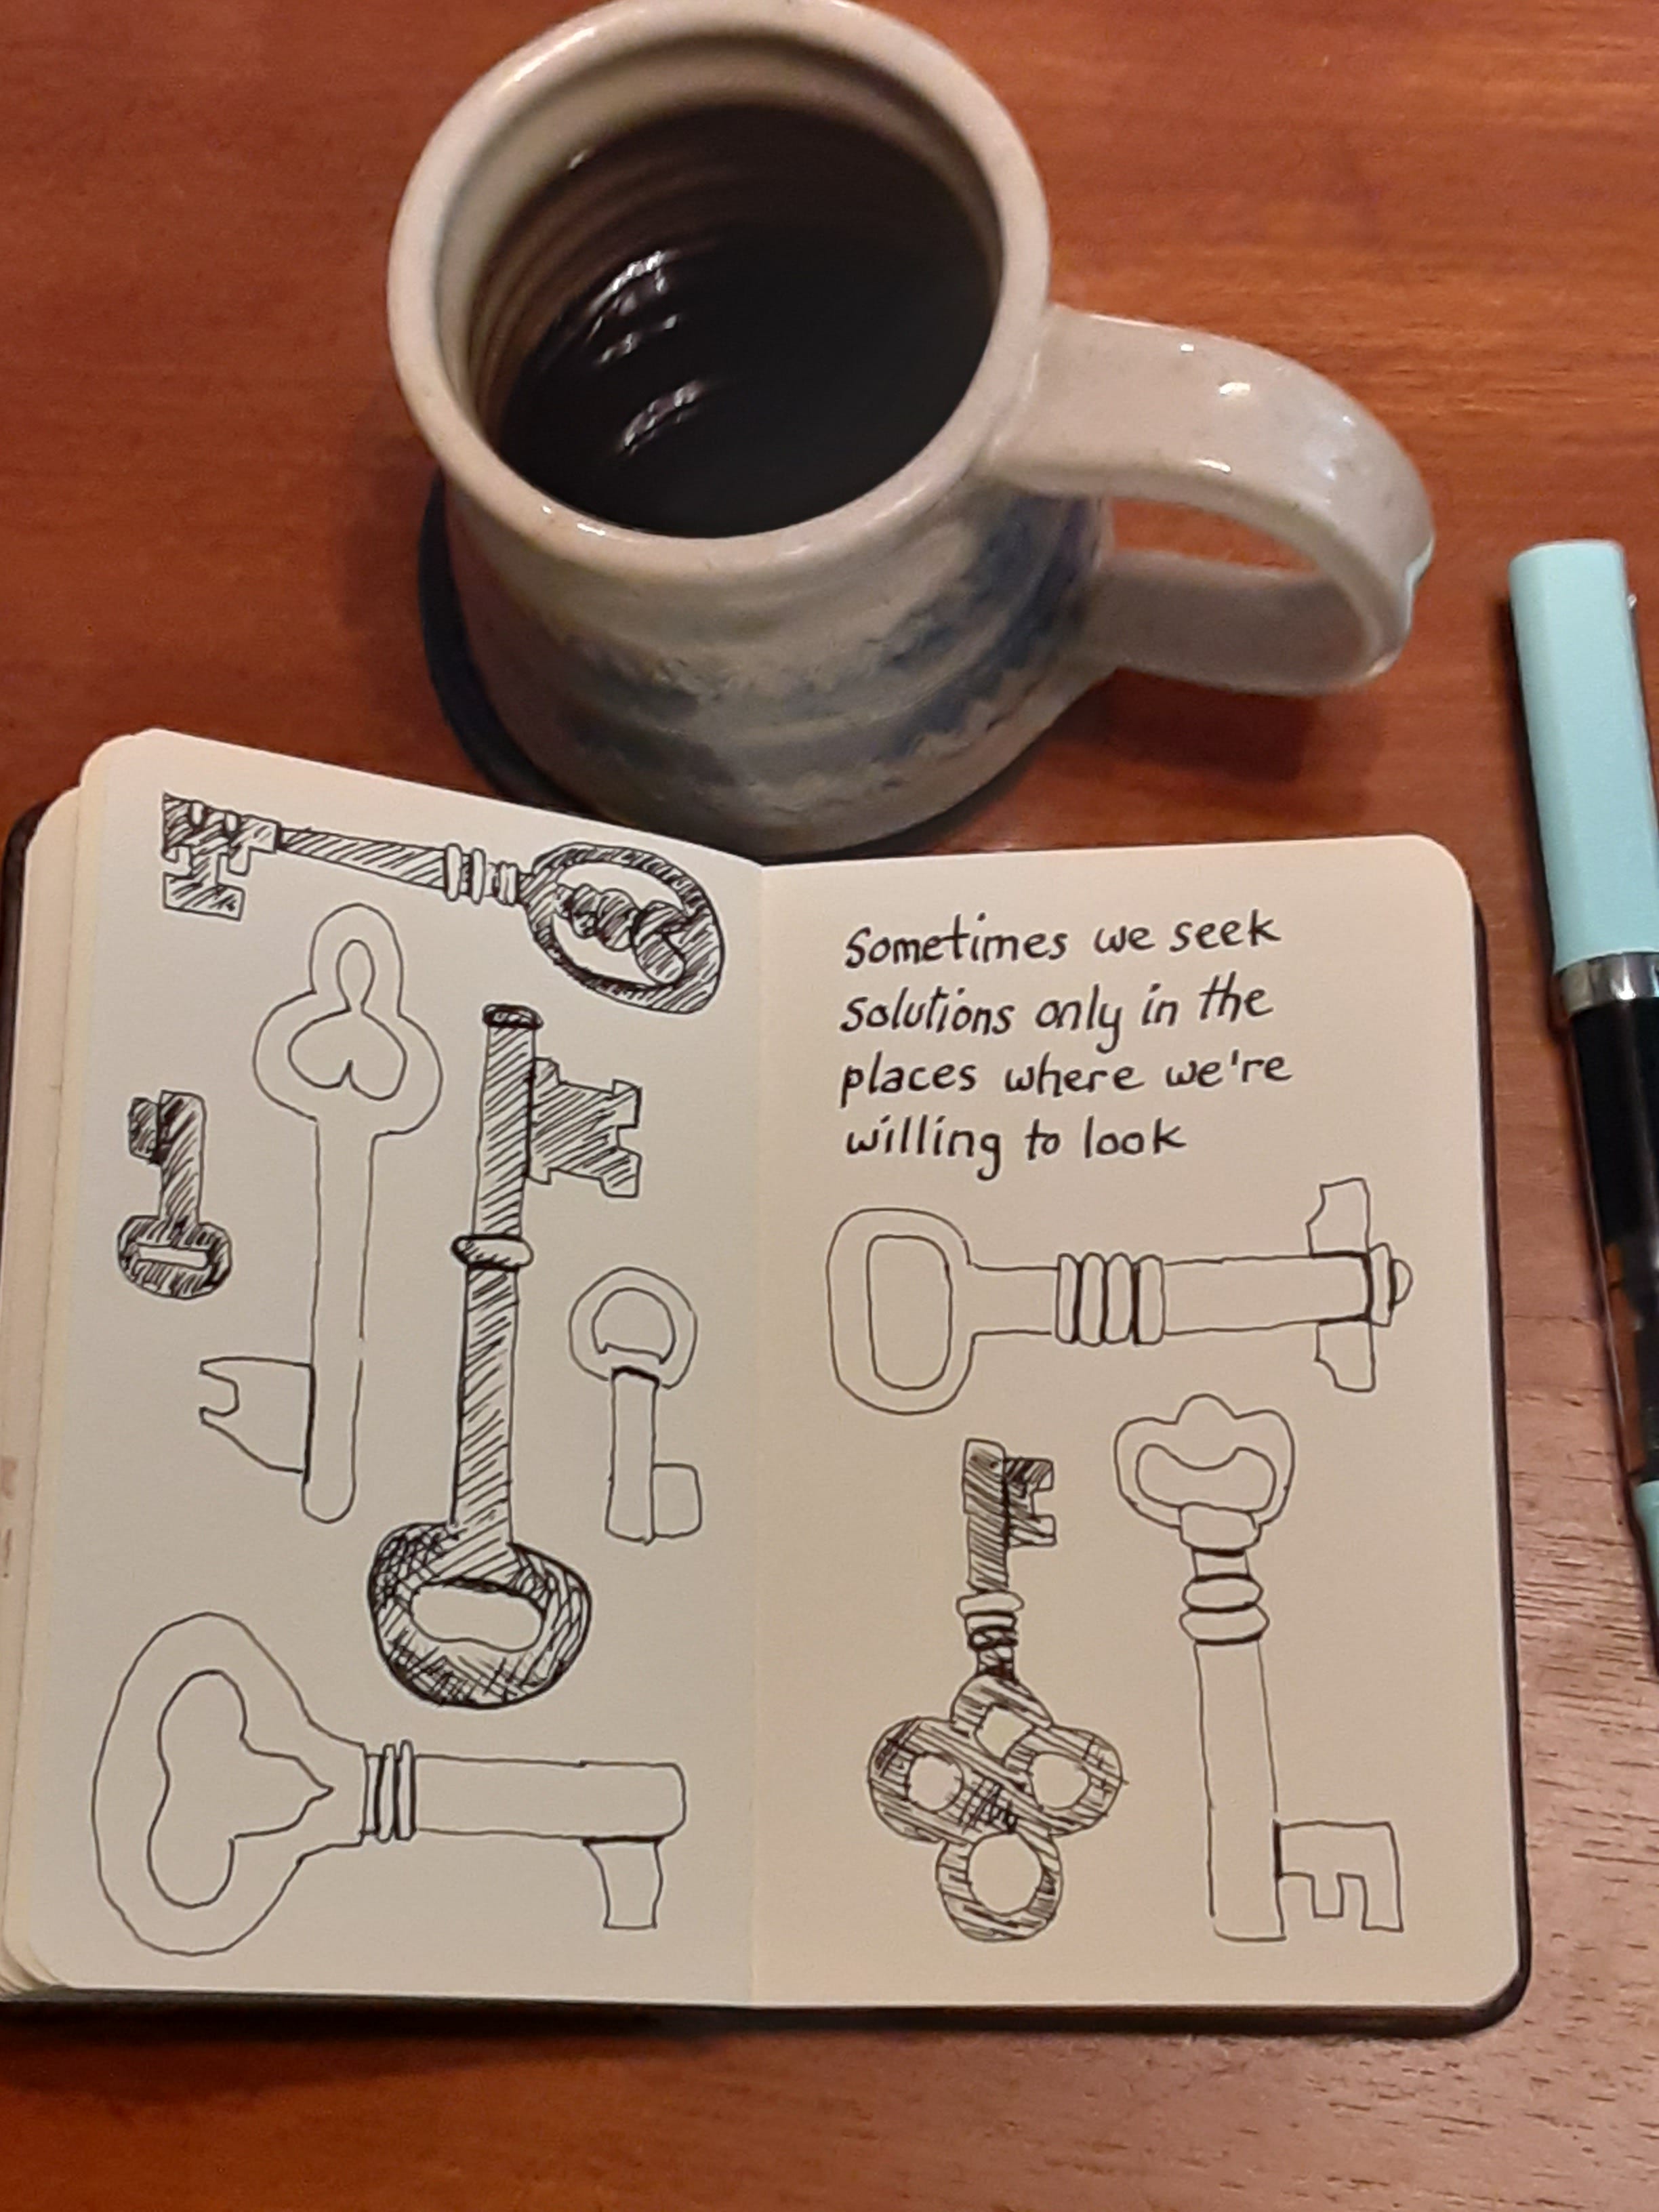 Sometimes we seek
solutions only in the
places where we're
willing to look